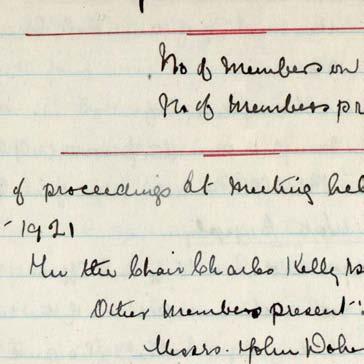 No of Members on
No of Members pr
of proceedings at Meeting hel
1921
In the Chair Charles Kelly
Other Members present:
Messrs. John Dohe